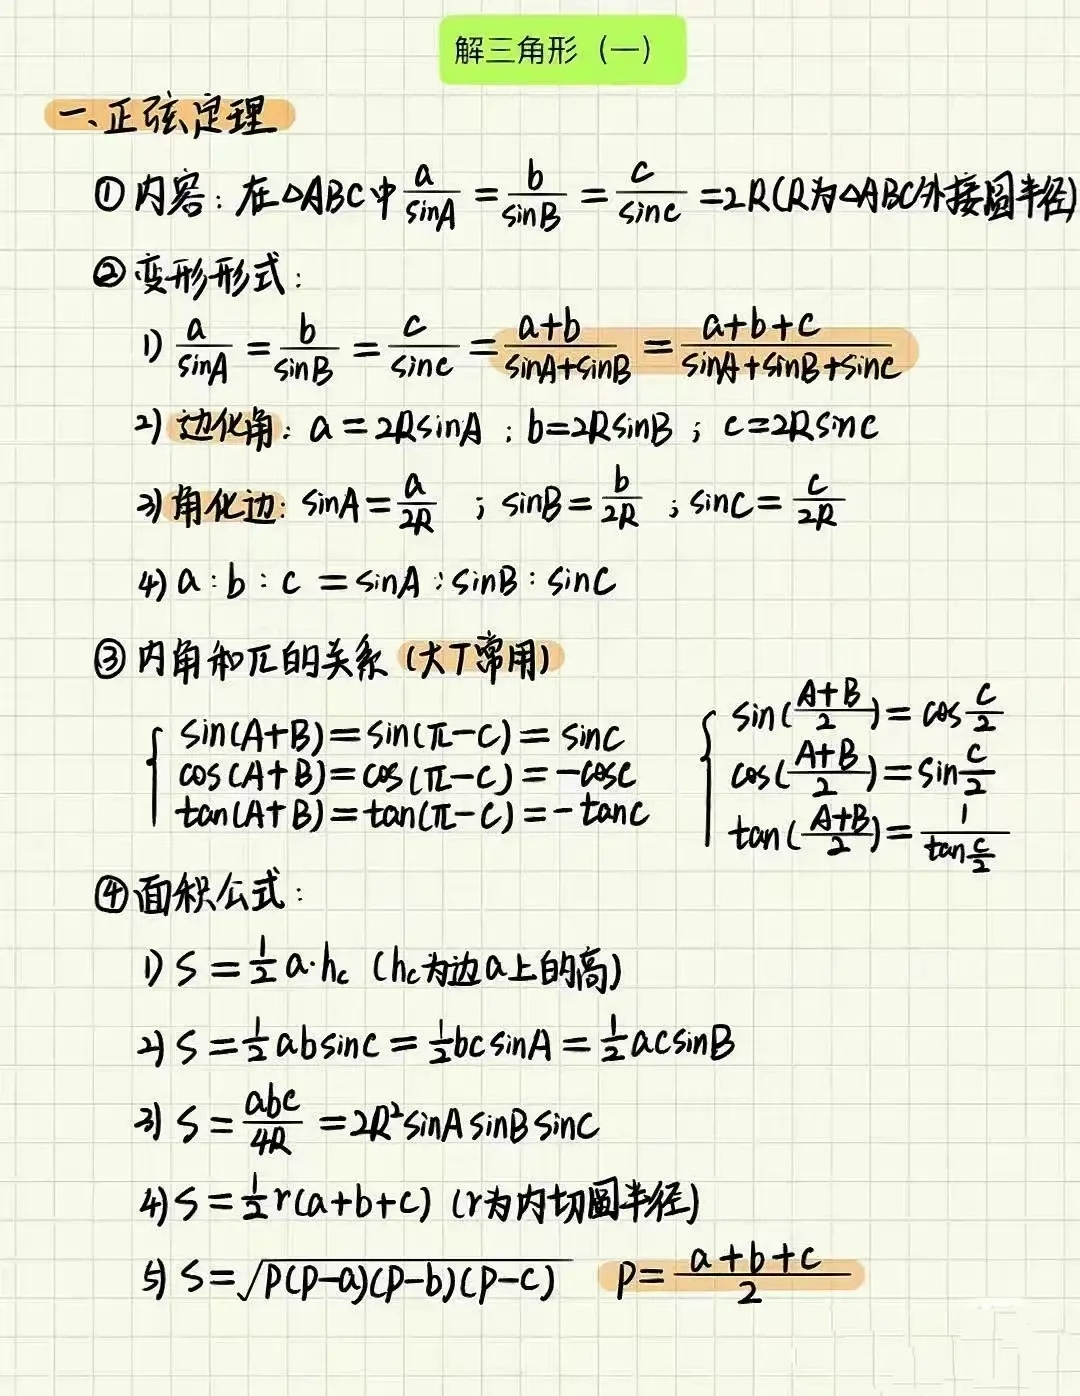 解三角形（一）
一、正弦定理
① 内容：在△ABC中 a/sinA = b/sinB = c/sinC = 2R(R为△ABC外接圆半径)
② 变形形式：
1) a/sinA = b/sinB = c/sinC = (a+b)/(sinA+sinB) = (a+b+c)/(sinA+sinB+sinC)
2) 边化角：a=2RsinA ; b=2RsinB ; c=2RsinC
3) 角化边：sinA=a/2R ; sinB=b/2R ; sinC=c/2R
4) a:b:c = sinA:sinB:sinC
③ 内角和π的关系 (大T常用)
sin(A+B)=sin(π-C)=sinC
cos(A+B)=cos(π-C)=-cosC
tan(A+B)=tan(π-C)=-tanC
sin((A+B)/2)=cos(C/2)
cos((A+B)/2)=sin(C/2)
tan((A+B)/2)=1/tan(C/2)
④ 面积公式：
1) S=1/2 a·hc (hc为边a上的高)
2) S=1/2 absinC=1/2 bcsinA=1/2 acsinB
3) S=abc/4R=2R²sinAsinBsinC
4) S=1/2 r(a+b+c) (r为内切圆半径)
5) S=√P(P-a)(P-b)(P-c) P=(a+b+c)/2